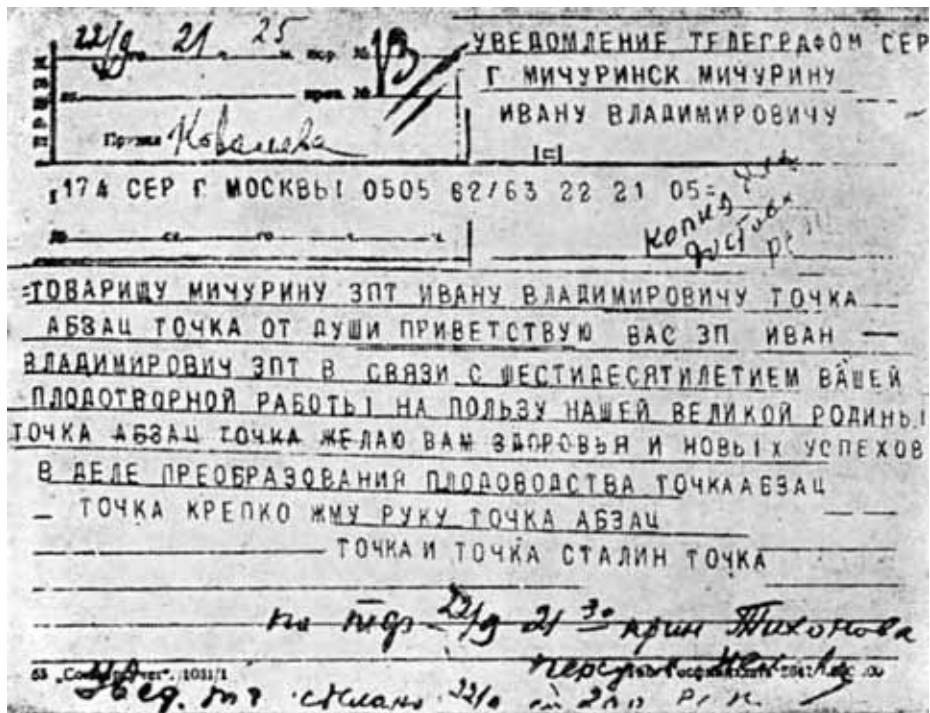 22/9 21 25
УВЕДОМЛЕНИЕ ТЕЛЕГРАФОМ СЕР
Г МИЧУРИНСК МИЧУРИНУ
ИВАНУ ВЛАДИМИРОВИЧУ
Ковалева
174 СЕР Г МОСКВЫ 0505 62/63 22 21 05=
копия
=ТОВАРИЩУ МИЧУРИНУ ЗПТ ИВАНУ ВЛАДИМИРОВИЧУ ТОЧКА
АБЗАЦ ТОЧКА ОТ ДУШИ ПРИВЕТСТВУЮ ВАС ЗП ИВАН
ВЛАДИМИРОВИЧ ЗПТ В СВЯЗИ С ШЕСТИДЕСЯТИЛЕТИЕМ ВАШЕЙ
ПЛОДОТВОРНОЙ РАБОТЫ НА ПОЛЬЗУ НАШЕЙ ВЕЛИКОЙ РОДИНЫ
ТОЧКА АБЗАЦ ТОЧКА ЖЕЛАЮ ВАМ ЗДОРОВЬЯ И НОВЫХ УСПЕХОВ
В ДЕЛЕ ПРЕОБРАЗОВАНИЯ ПЛОДОВОДСТВА ТОЧКААБЗАЦ
ТОЧКА КРЕПКО ЖМУ РУКУ ТОЧКА АБЗАЦ
ТОЧКА И ТОЧКА СТАЛИН ТОЧКА
22/9 21 30 прин Тихонова